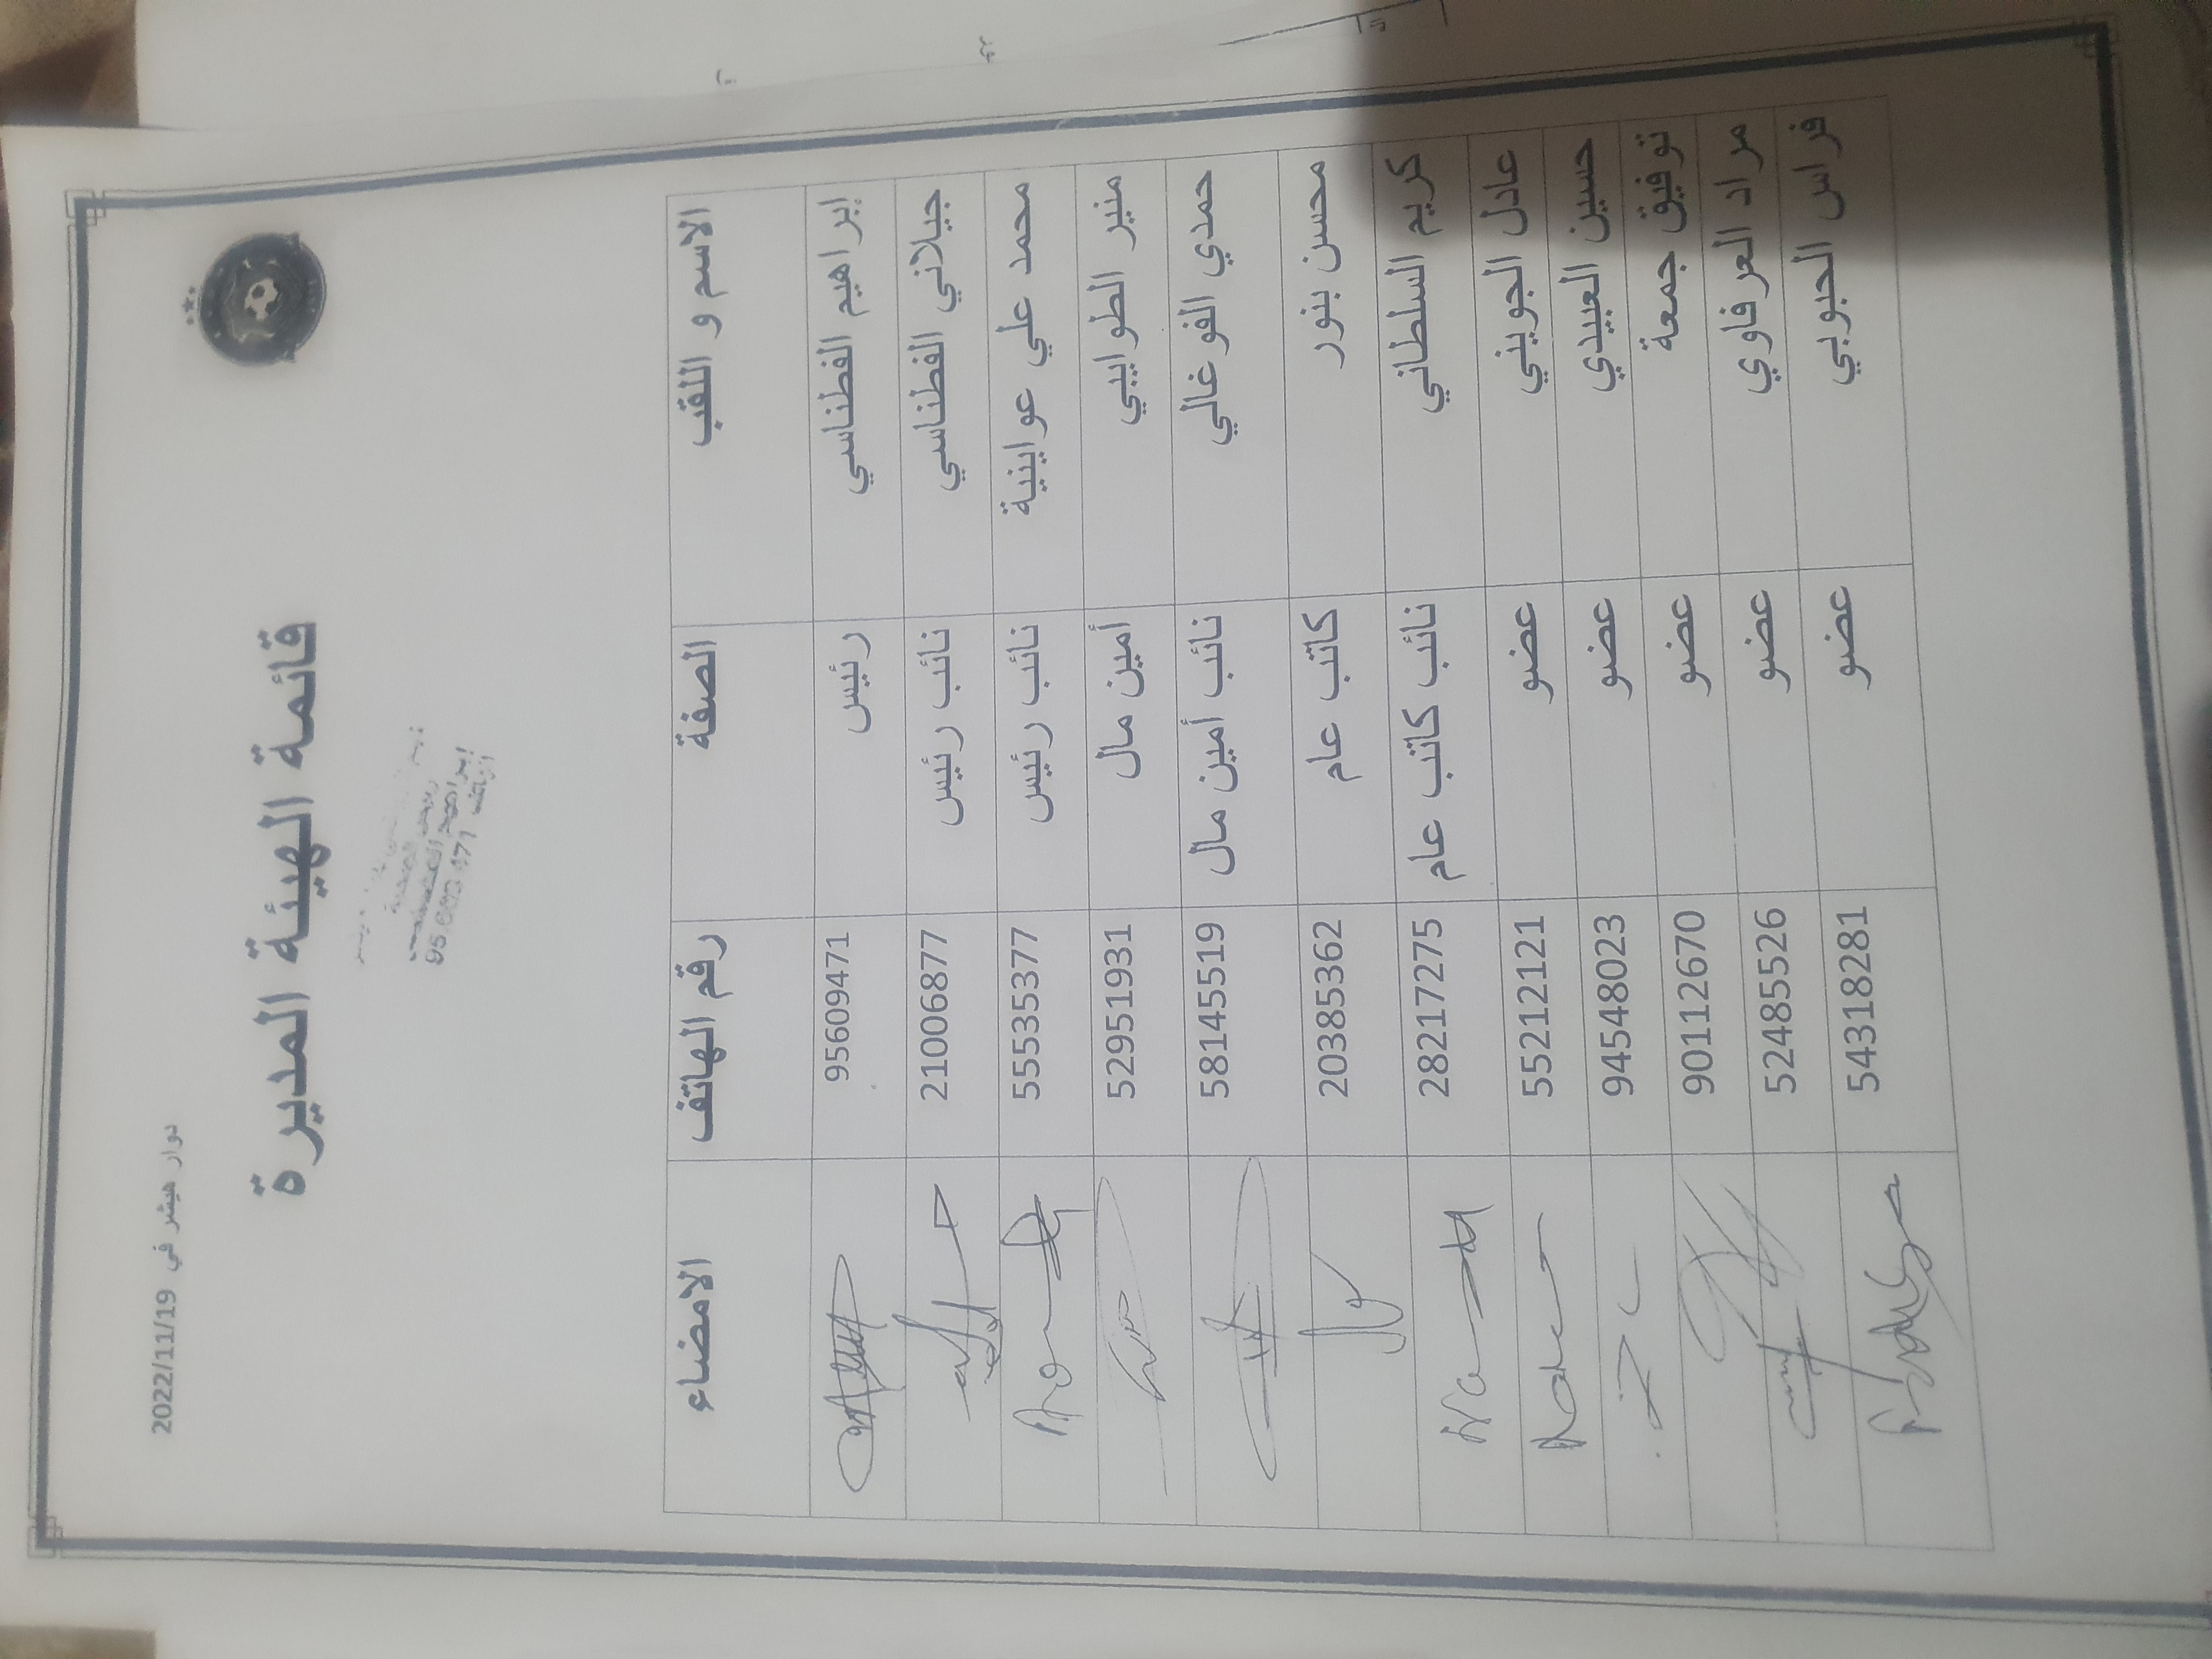 دوار هيشر في 2022/11/19
قائمة الهيئة المديرة
الاسم و اللقب الصفة رقم الهاتف الامضاء
إبراهيم الفطناسي رئيس 95609471
جيلاني الفطناسي نائب رئيس 21006877
محمد علي عواينية نائب رئيس 55535377
منير الطوايبي أمين مال 52951931
حمدي الفوغالي نائب أمين مال 58145519
محسن بنور كاتب عام 20385362
كريم السلطاني نائب كاتب عام 28217275
عادل الجويني عضو 55212121
حسين العبيدي عضو 94548023
توفيق جمعة عضو 90112670
مراد العرفاوي عضو 52485526
فراس الحبوبي عضو 54318281